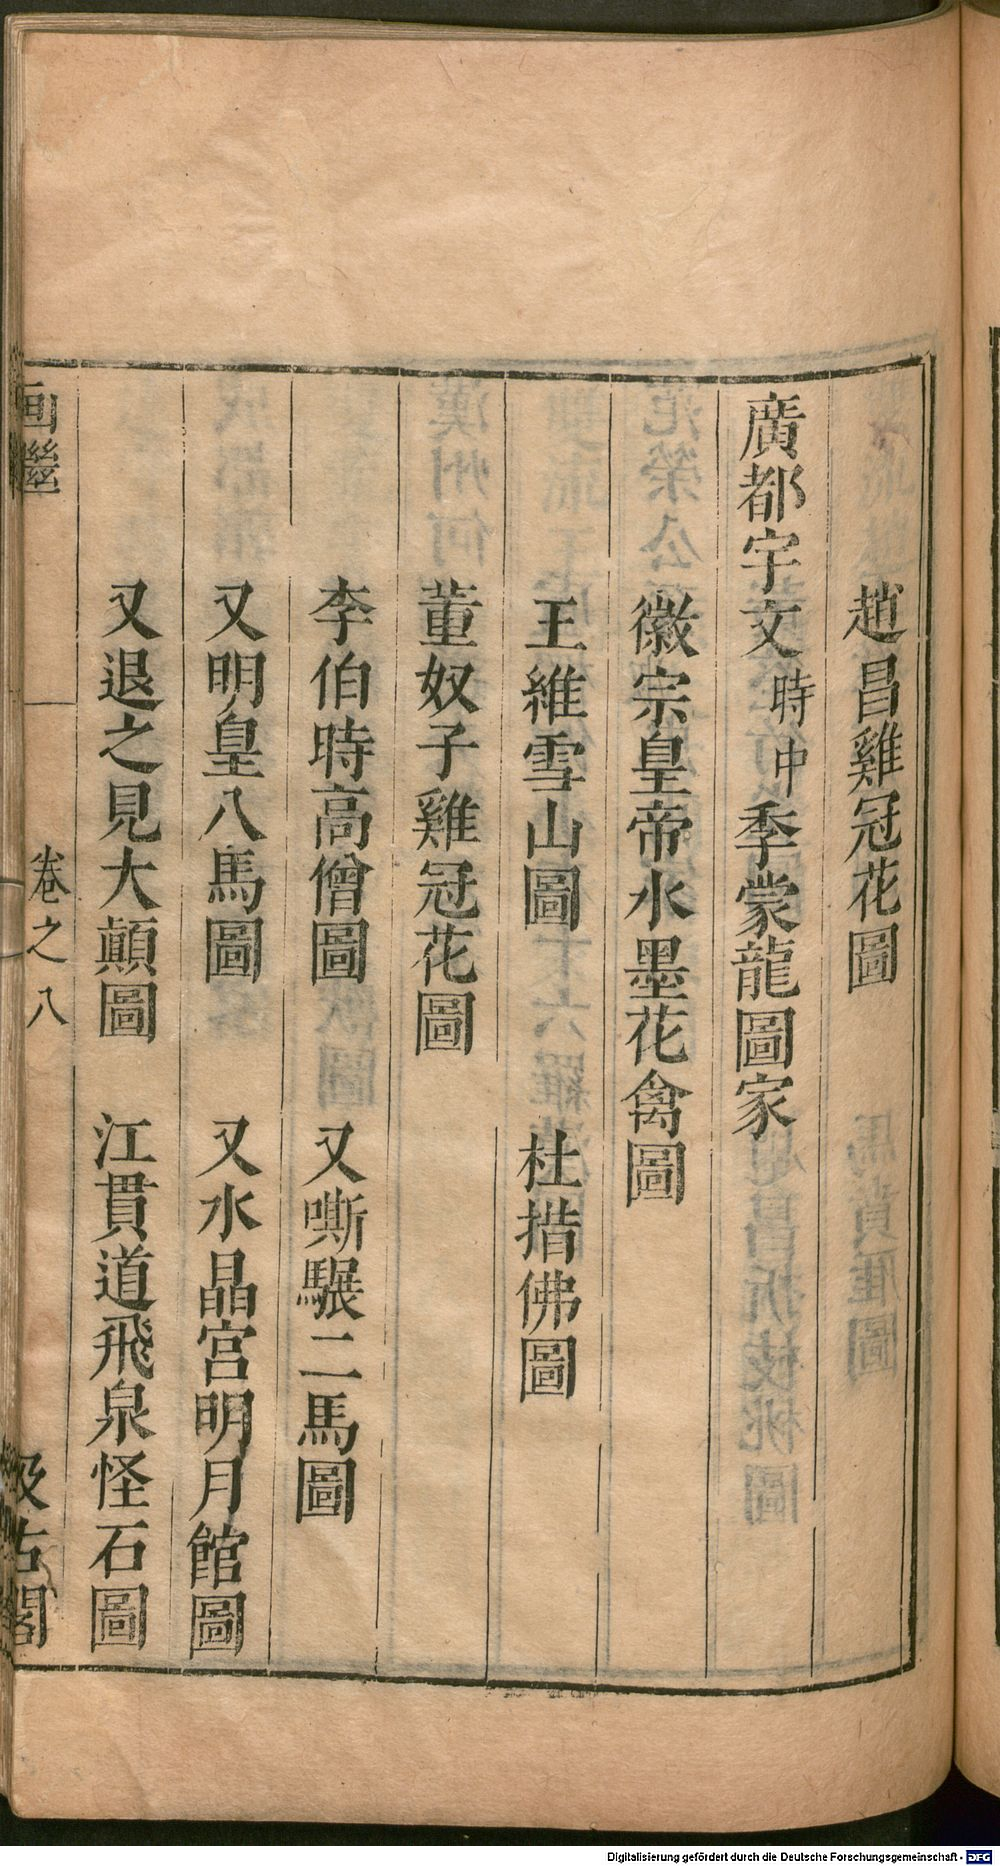 趙昌雞冠花圖
廣都宇文時中季蒙龍圖家
徽宗皇帝水墨花禽圖
王維雪山圖 杜措佛圖
董奴子雞冠花圖
李伯時高僧圖 又嘶驏二馬圖
又明皇八馬圖 又水晶宮明月館圖
又退之見大顛圖 江貫道飛泉怪石圖
画繼 卷之八 汲古閣
Digitalisierung gefördert durch die Deutsche Forschungsgemeinschaft - DFG